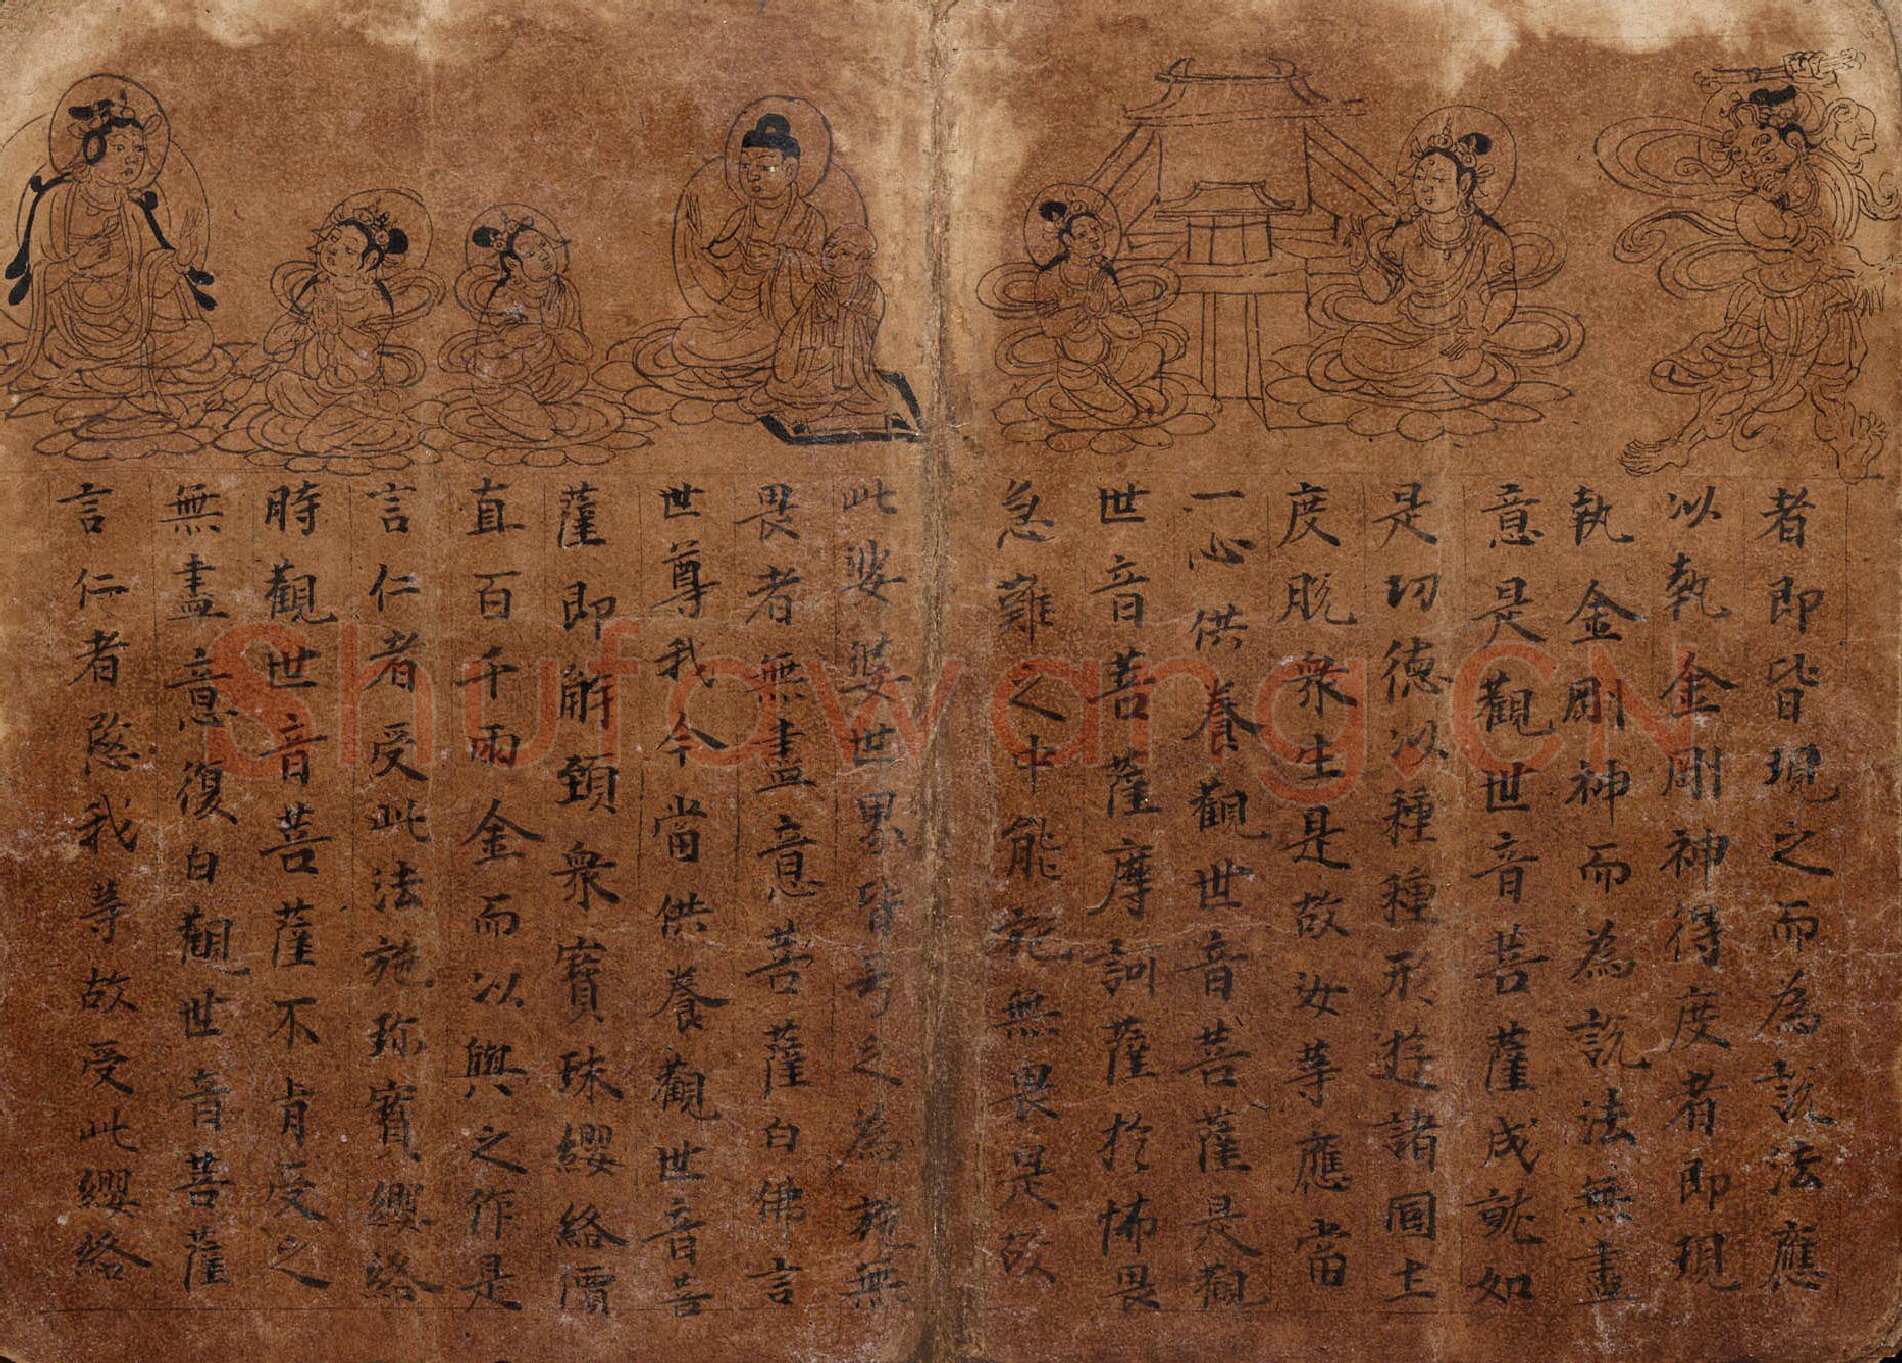 者即皆現之而為說法應
以執金剛神得度者即現
執金剛神而為說法無盡
意是觀世音菩薩成就如
是功德以種種形遊諸國土
度脫眾生是故汝等應當
一心供養觀世音菩薩是觀
世音菩薩摩訶薩於怖畏
急難之中能施無畏是故
此娑婆世界皆号之為施無
畏者無盡意菩薩白佛言
世尊我今當供養觀世音菩
薩即解頸眾寶珠纓絡價
直百千兩金而以與之作是
言仁者受此法施珎寶纓絡
時觀世音菩薩不肯受之
無盡意復白觀世音菩薩
言仁者愍我等故受此纓絡
Shufawang.CN